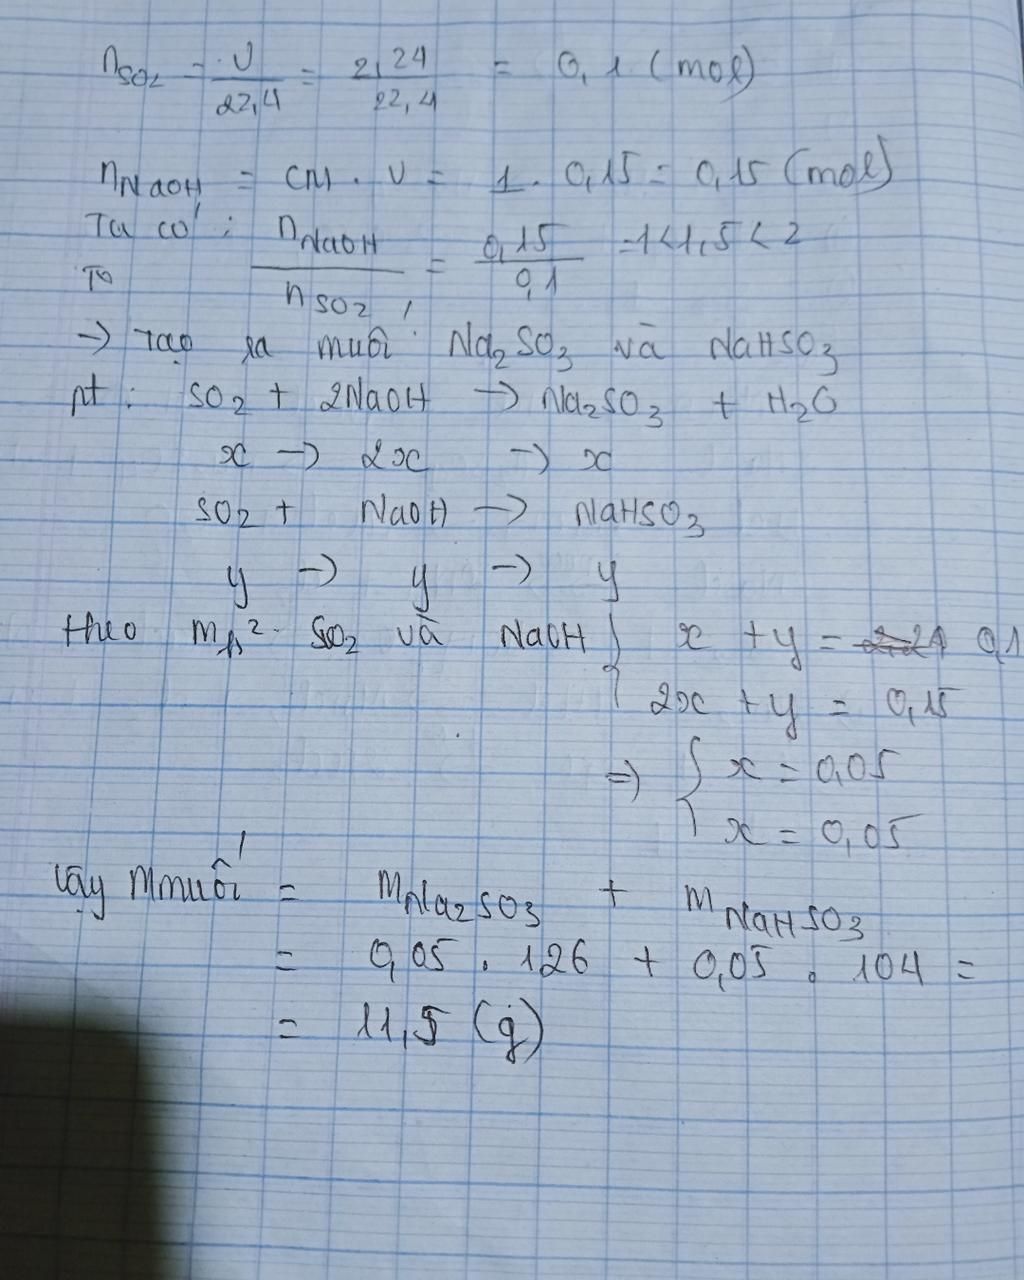 nSO2 = V/22,4 = 2,24/22,4 = 0,1 (mol)
nNaOH = CM . V = 1 . 0,15 = 0,15 (mol)
Ta có : nNaOH/nSO2 = 0,15/0,1 = 1<1,5<2
→ Tạo ra muối Na2SO3 và NaHSO3
pt : SO2 + 2NaOH → Na2SO3 + H2O
x → 2x → x
SO2 + NaOH → NaHSO3
y → y → y
theo SO2 và NaOH { x + y = 0,1
2x + y = 0,15
=> { x = 0,05
x = 0,05
Vậy Mmuối = mNa2SO3 + mNaHSO3
= 0,05 . 126 + 0,05 . 104 =
= 11,5 (g)